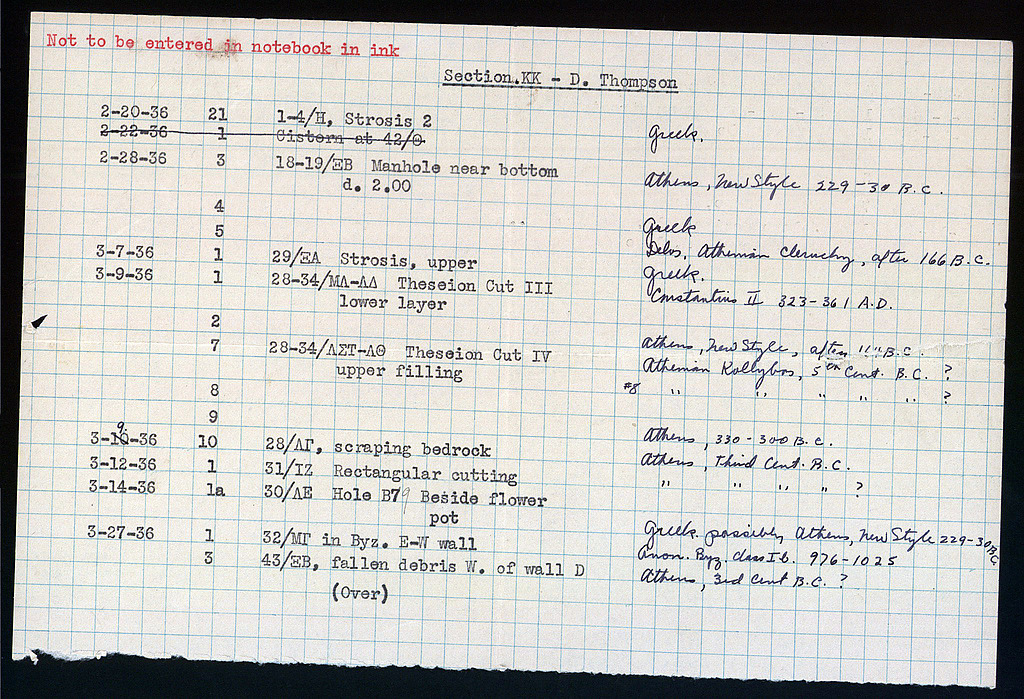 Not to be entered in notebook in ink
Section.KK - D. Thompson
2-20-36 21 1-4/H, Strosis 2 Greek.
2-22-36 1 Cistern at 42/Θ
2-28-36 3 18-19/ΞΒ Manhole near bottom Athens, New Style 229-30 B.C.
d. 2.00
4
5 Greek
3-7-36 1 29/ΞΑ Strosis, upper Delos, Athenian Cleruchy, after 166 B.C.
3-9-36 1 28-34/ΜΛ-ΛΔ Theseion Cut III Greek.
lower layer Constantius II 323-361 A.D.
2
7 28-34/ΛΣΤ-ΛΘ Theseion Cut IV Athens, New Style, after B.C.
upper filling Athenian Kollybos, 5th Cent. B.C. ?
8 #8 " " " " " ?
9
3-10-36 9 10 28/ΛΓ, scraping bedrock Athens, 330-300 B.C.
3-12-36 1 31/ΙΖ Rectangular cutting Athens, Third Cent. B.C.
3-14-36 1a 30/ΛΕ Hole B79 Beside flower " " " " ?
pot
3-27-36 1 32/ΜΓ in Byz. E-W wall Greek possibly Athens, New Style 229-30 B.C.
3 43/ΞΒ, fallen debris W. of wall D Anon. Byz. class Ib. 976-1025
(Over) Athens, 3rd Cent B.C. ?